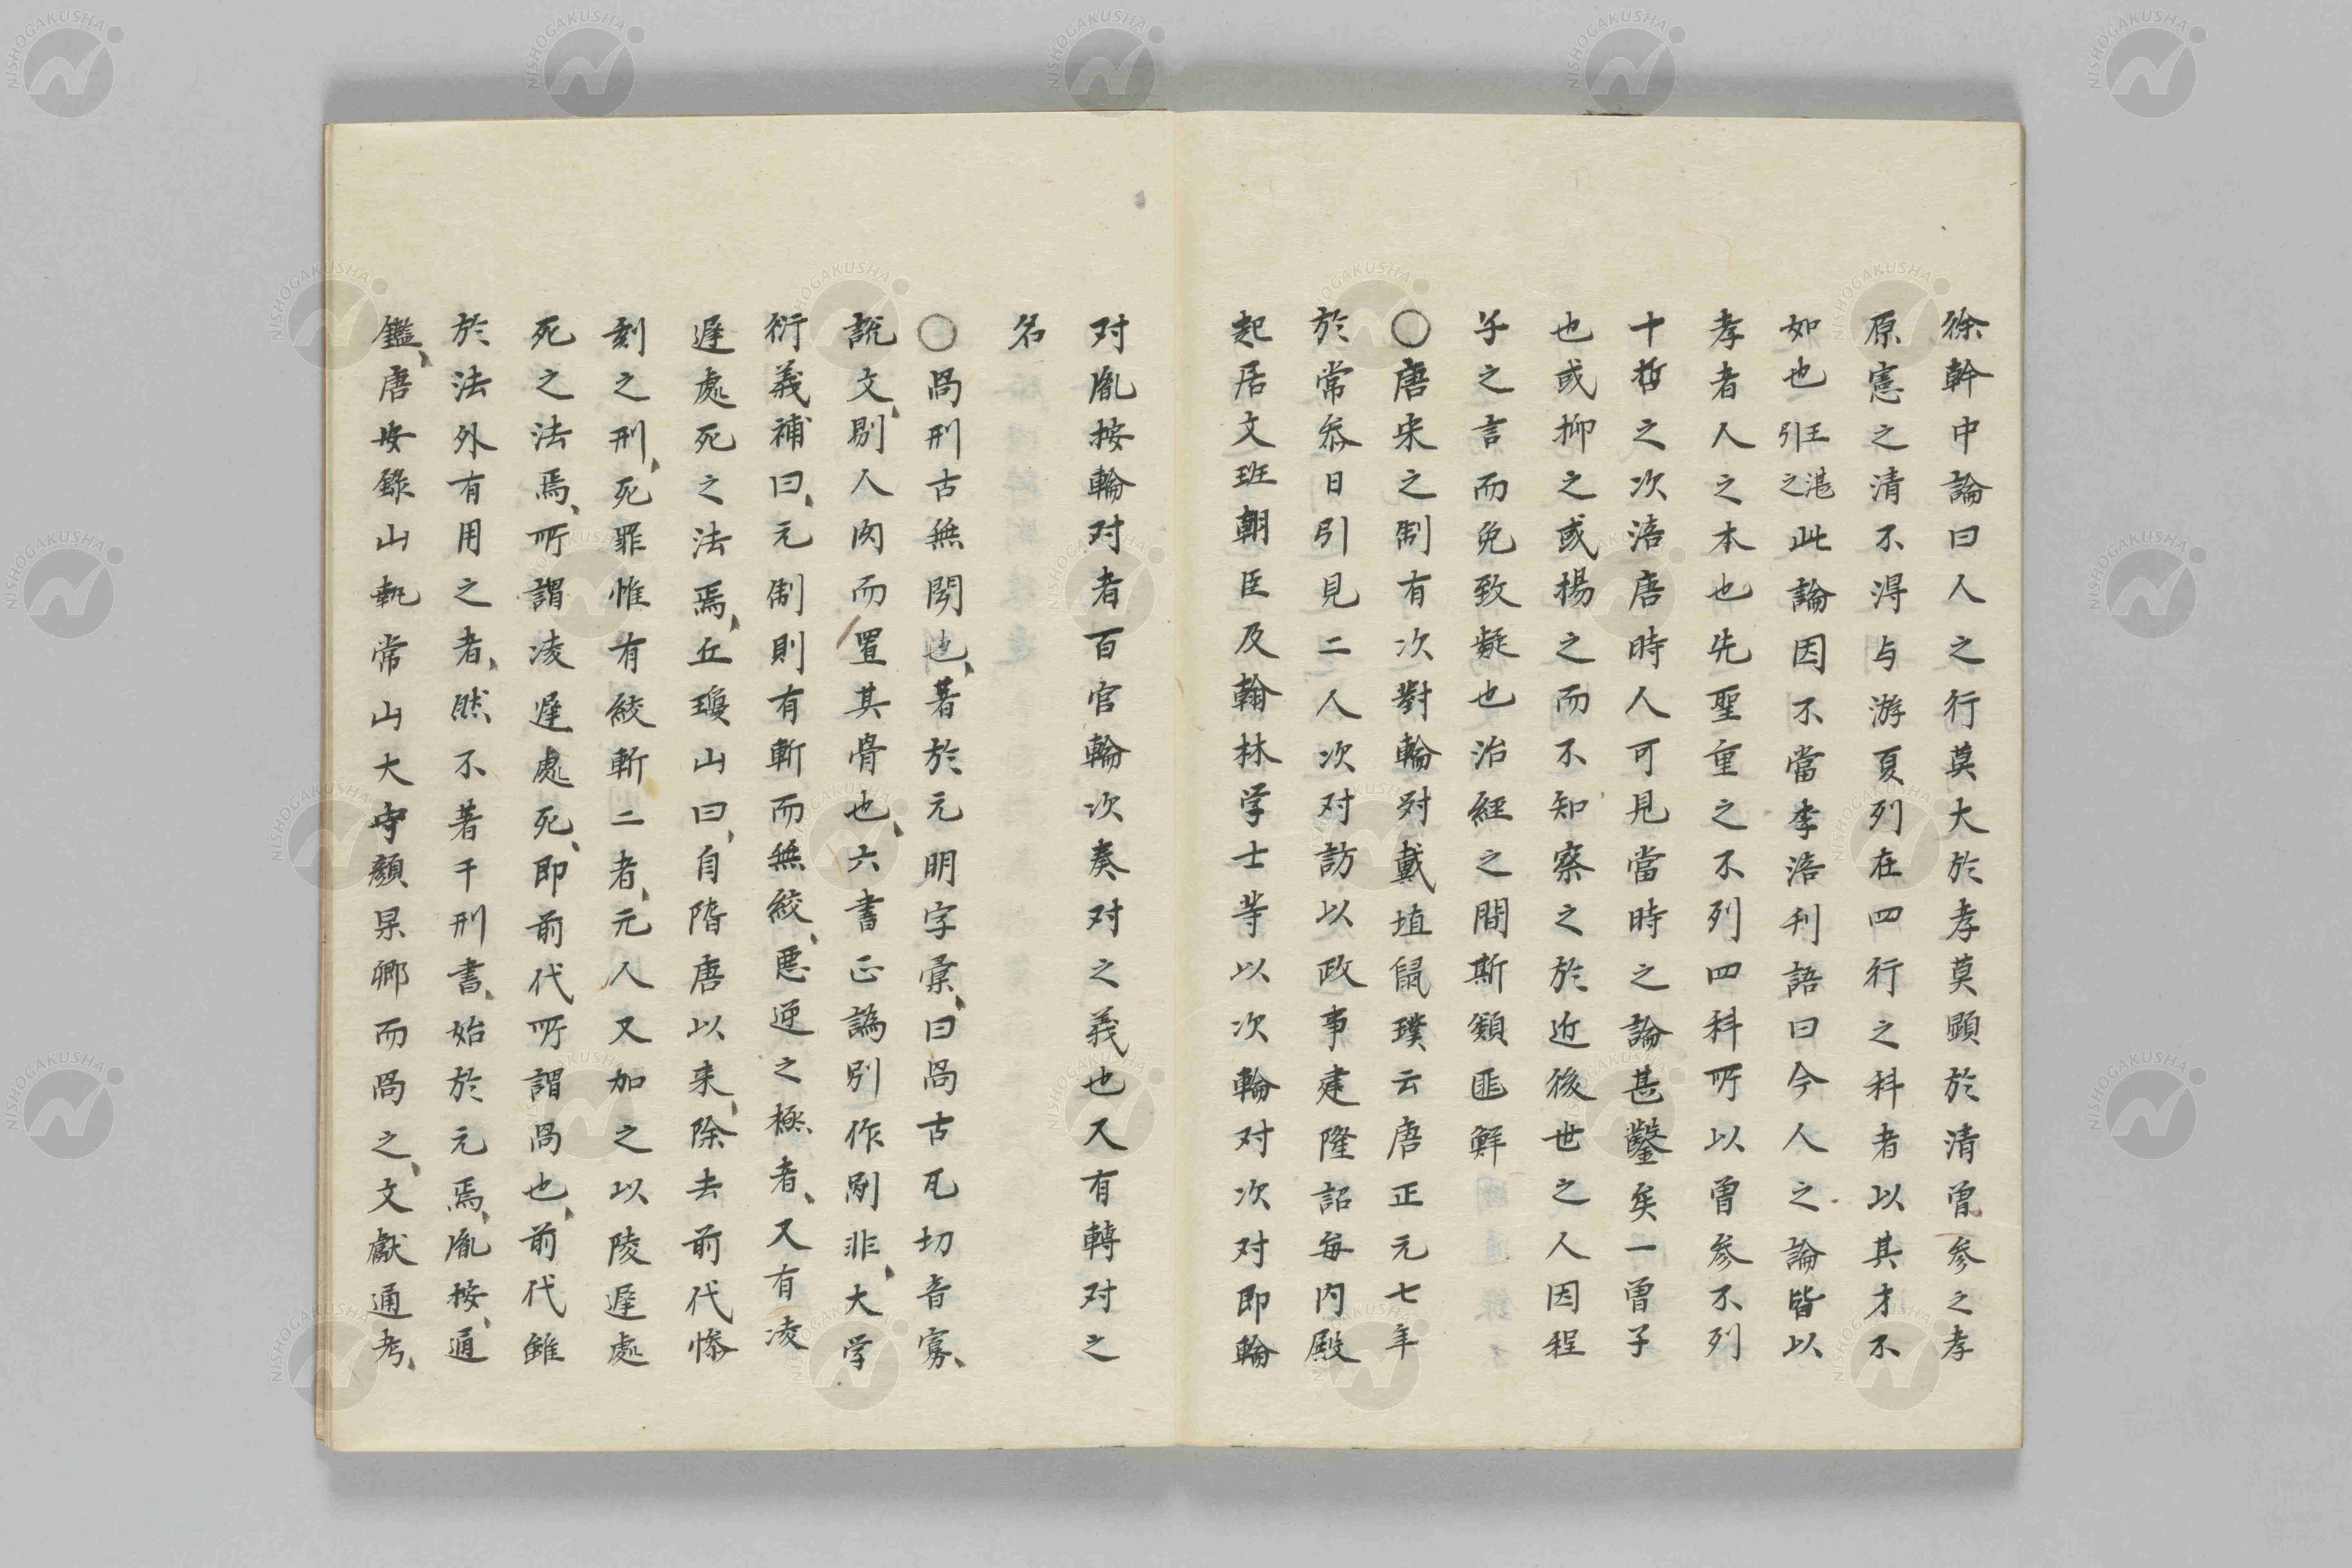 徐幹中論曰人之行莫大於孝莫顕於清曽参之孝
原憲之清不得与游夏列在四行之科者以其才不
如也王湛引之此論因不當李涪刊語曰今人之論皆以
孝者人之本也先聖重之不列四科所以曽参不列
十哲之次涪唐時人可見當時之論甚鑿矣一曽子
也或抑之或揚之而不知察之於近後世之人因程
子之言而免致疑也治経之間斯類匪鮮
〇唐宋之制有次對輪対戴埴鼠璞云唐正元七年
於常参日引見二人次対訪以政事建隆詔毎内殿
起居文班朝臣及翰林学士等以次輪対次対即輪
対胤按輪対者百官輪次奏対之義也又有轉対之
名
〇咼刑古無聞也、著於元明字彙、曰咼古瓦切音寡、
説文、剔人肉而置其骨也、六書正譌別作剐非、大学
衍義補曰、元制則有斬而無絞、悪逆之極者、又有凌
遅處死之法焉、丘瓊山曰、自隋唐以来、除去前代惨
刻之刑、死罪惟有絞斬二者、元人又加之以陵遅處
死之法焉、所謂凌遅處死、即前代所謂咼也、前代雖
於法外有用之者、然不著于刑書、始於元焉、胤按、通
鑑、唐安錄山執常山大守顔杲卿而咼之、文獻通考、
NISHOGAKUSHA